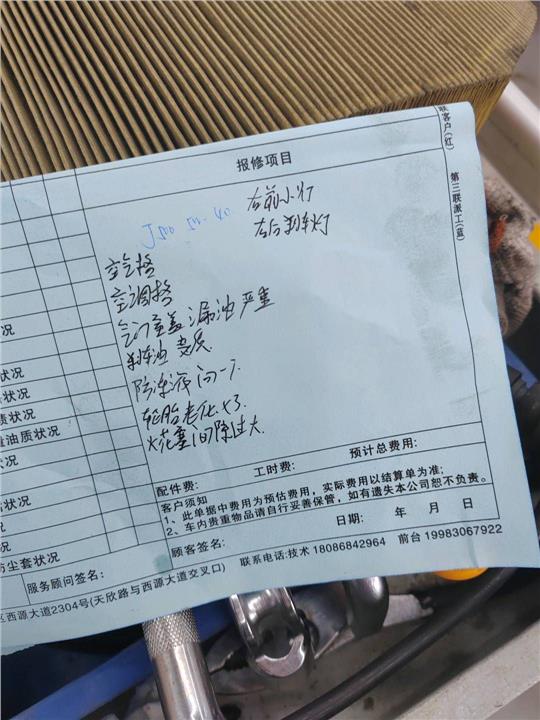 联客户(红)
第三联派工(蓝)
报修项目
右前小灯
J500 5W-40
左后刹车灯
空气格
空调格
气门室盖漏油严重
刹车油变质
防冻液问一下
轮胎老化X3
火花塞间隙过大
状况
状况
质状况
油质状况
状况
状况
防尘套状况
配件费：
工时费：
预计总费用：
客户须知
1、此单据中费用为预估费用，实际费用以结算单为准；
2、车内贵重物品请自行妥善保管，如有遗失本公司恕不负责。
服务顾问签名：
顾客签名：
日期： 年 月 日
区西源大道2304号(天欣路与西源大道交叉口)
联系电话:技术 18086842964 前台 19983067922